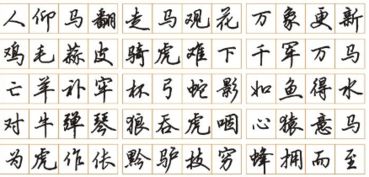 人仰马翻走马观花万象更新
鸡毛蒜皮骑虎难下千军万马
亡羊补牢杯弓蛇影如鱼得水
对牛弹琴狼吞虎咽心猿意马
为虎作伥黔驴技穷蜂拥而至